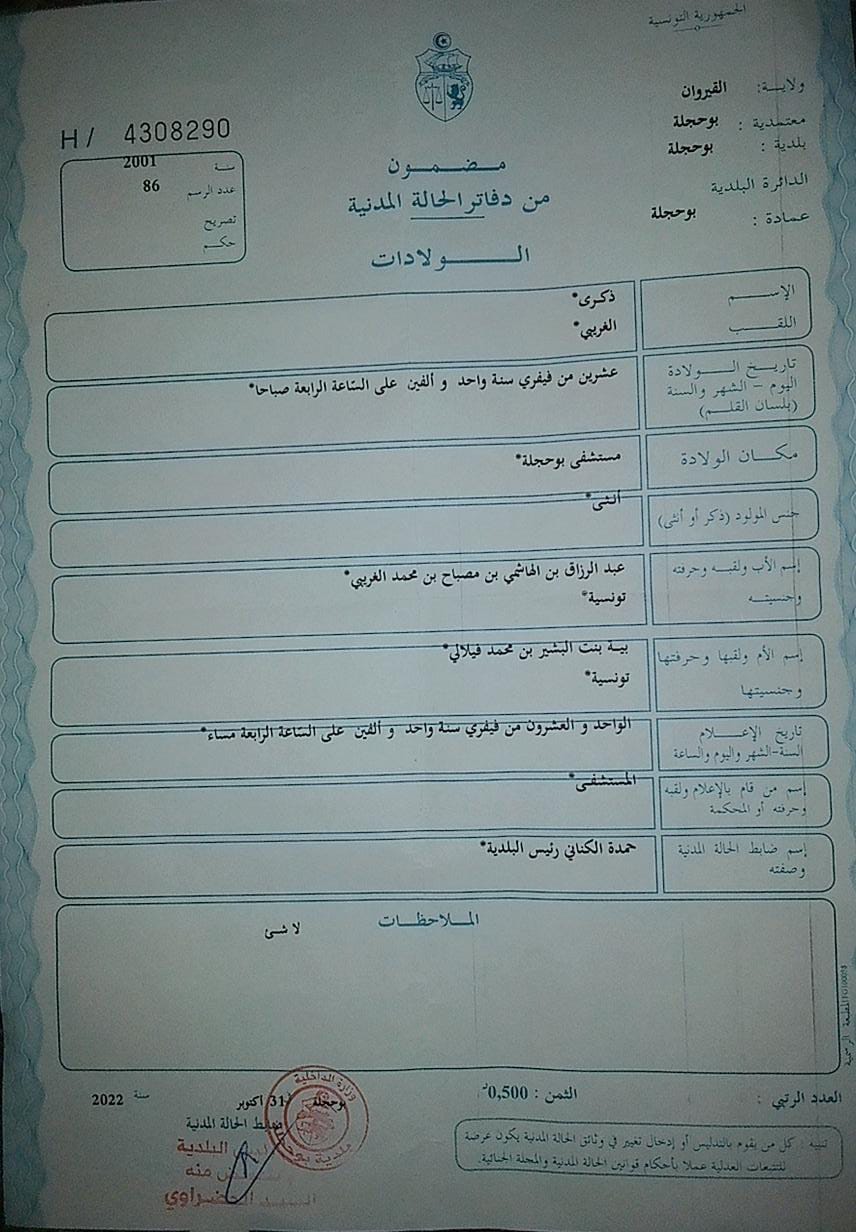 الجمهورية التونسية
ولاية: القيروان
معتمدية : بوحجلة
بلدية : بوحجلة
الدائرة البلدية
عمادة : بوحجلة
H/ 4308290
سنة 2001
عدد الرسم 86
تصريح
حكم
مضمون
من دفاتر الحالة المدنية
الولادات
الإسم ذكرى*
اللقب الغريبي*
تاريخ الولادة
اليوم - الشهر والسنة
(بلسان القلم)
عشرين من فيفري سنة واحد و ألفين على الساعة الرابعة صباحا*
مكان الولادة مستشفى بوحجلة*
جنس المولود (ذكر أو أنثى) أنثى*
إسم الأب ولقبه وحرفته عبد الرزاق بن الهاشمي بن مصباح بن محمد الغريبي*
وجنسيته تونسية*
إسم الأم ولقبها وحرفتها بية بنت البشير بن محمد فيلالي*
وجنسيتها تونسية*
تاريخ الإعلام
السنة-الشهر واليوم والساعة
الواحد و العشرون من فيفري سنة واحد و ألفين على الساعة الرابعة مساء*
إسم من قام بالإعلام ولقبه
وحرفته أو المحكمة
المستشفى*
إسم ضابط الحالة المدنية
وصفته
حمدة الكناني رئيس البلدية*
الملاحظات
لا شئ
العدد الرتبي :
الثمن : 0,500د
بوحجلة 31 أكتوبر سنة 2022
ضابط الحالة المدنية
وزارة الداخلية
بلدية بوحجلة
البلدية
منه
تنبيه : كل من يقوم بالتدليس أو إدخال تغيير في وثائق الحالة المدنية يكون عرضة
للتتبعات العدلية عملا بأحكام قوانين الحالة المدنية والمجلة الجنائية.
المطبعة الرسمية